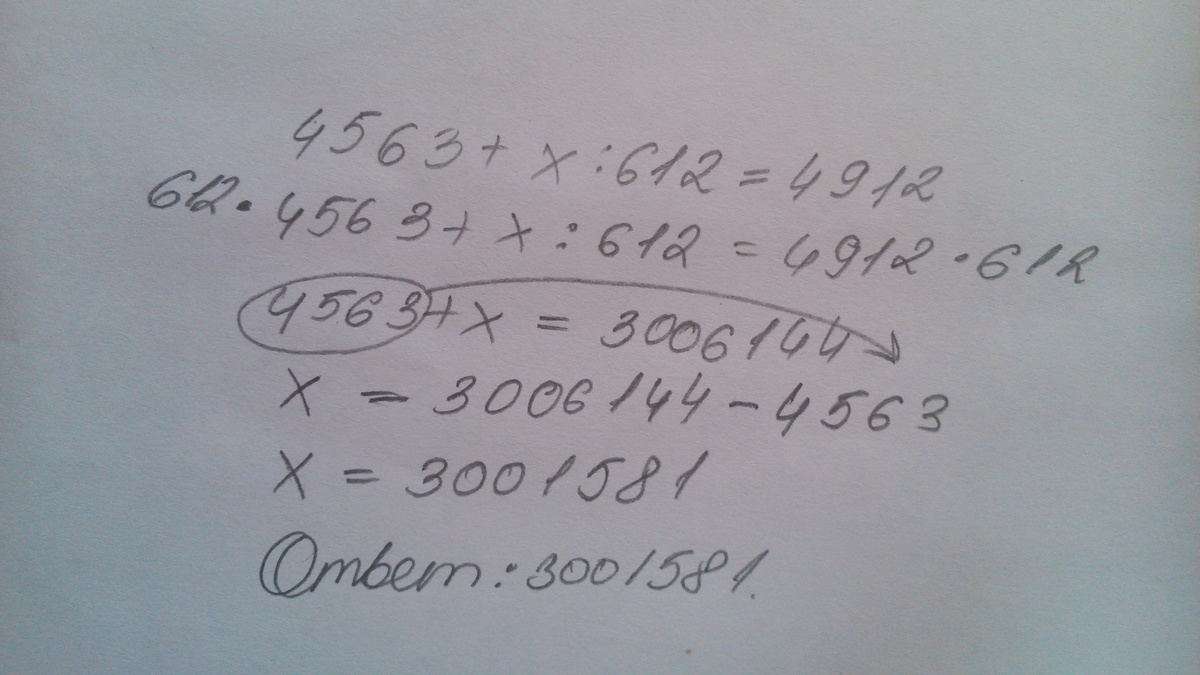 4563 + x : 612 = 4912
612 · 4563 + x : 612 = 4912 · 612
4563 + x = 3006144
x = 3006144 - 4563
x = 3001581
Ответ: 3001581.